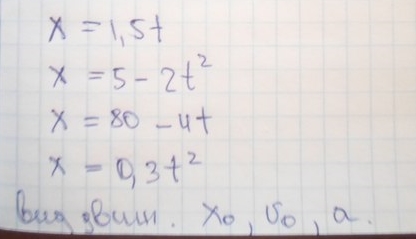 x = 1,5t
x = 5 - 2t²
x = 80 - 4t
x = 0,3t²
Вид движ. x₀, υ₀, a.